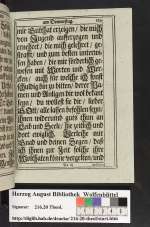 am Donnerstag.
mir Gutthat erzeigen / die mich
von Jugend aufferzogen und
ernehret / die mich gelehret / ge-
strafft / und zum besten unterwie-
sen haben / die mir förderlich ge-
wesen mit Worten und Wer-
cken / auch für welche ich sonst
schuldig bin zu bitten / derer Na-
men und Anligen dir wol bekant
seyn / du wollest sie dir / lieber
GOtt / alle lassen befohlen seyn /
ihnen widerumb guts thun an
Leib und Seele / sie zeitlich und
dort ewiglich. Verleihe mir
Gnad und deinen Segen / daß
ich ihnen zur Zeit solche ihre
Wolthaten könne vergelten / und
Herzog August Bibliothek Wolfenbüttel
Signatur: 216.20 Theol.
http://diglib.hab.de/drucke/216-20-theol/start.htm